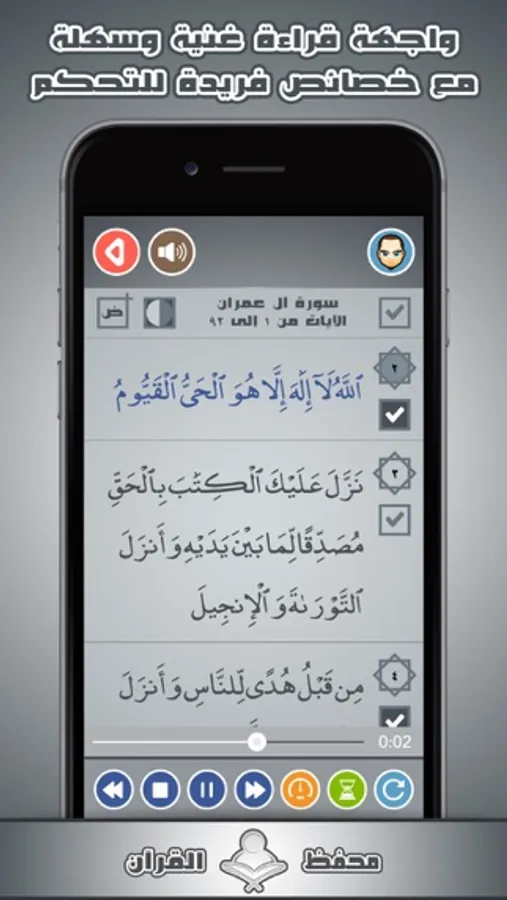 واجهة قراءة غنية وسهلة
مع خصائص فريدة للتحكم
سورة ال عمران
الآيات من ١ إلى ٩٢
ض
٢
ٱللَّهُ لَآ إِلَٰهَ إِلَّا هُوَ ٱلْحَىُّ ٱلْقَيُّومُ
٣
نَزَّلَ عَلَيْكَ ٱلْكِتَٰبَ بِٱلْحَقِّ
مُصَدِّقًا لِّمَا بَيْنَ يَدَيْهِ وَأَنزَلَ
ٱلتَّوْرَىٰةَ وَٱلْإِنجِيلَ
٤
مِن قَبْلُ هُدًى لِّلنَّاسِ وَأَنزَلَ
0:02
محفظ القرآن